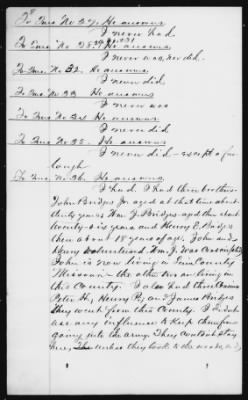 To Ques. No 27. He answers
I never had
To Ques. No 28. He answers
I never was, nor did.
To Ques. No 32. He answers
I never did
To Ques. No 33 He answers
I never was
To Ques. No 34. He answers
I never did
To Ques. No 35. He answers
I never did – except a fur
lough
To Ques. No 36. He answers
I had. I had three brothers
John Bridges Jr. aged at that time about
thirty years; Wm. J. Bridges aged then about
twenty-six years and Henry C. Bridges
then about 18 years of age. John and
Henry volunteered Wm. J. was conscripted
John is now living in County
Missouri – the other two are living in
this County. I also had three Cousins
Peter H., Henry P., and James Bridges
they went from this County. I did not
use any influence to keep them from
going into the army. They could not stay
here, unless they took to the woods, and